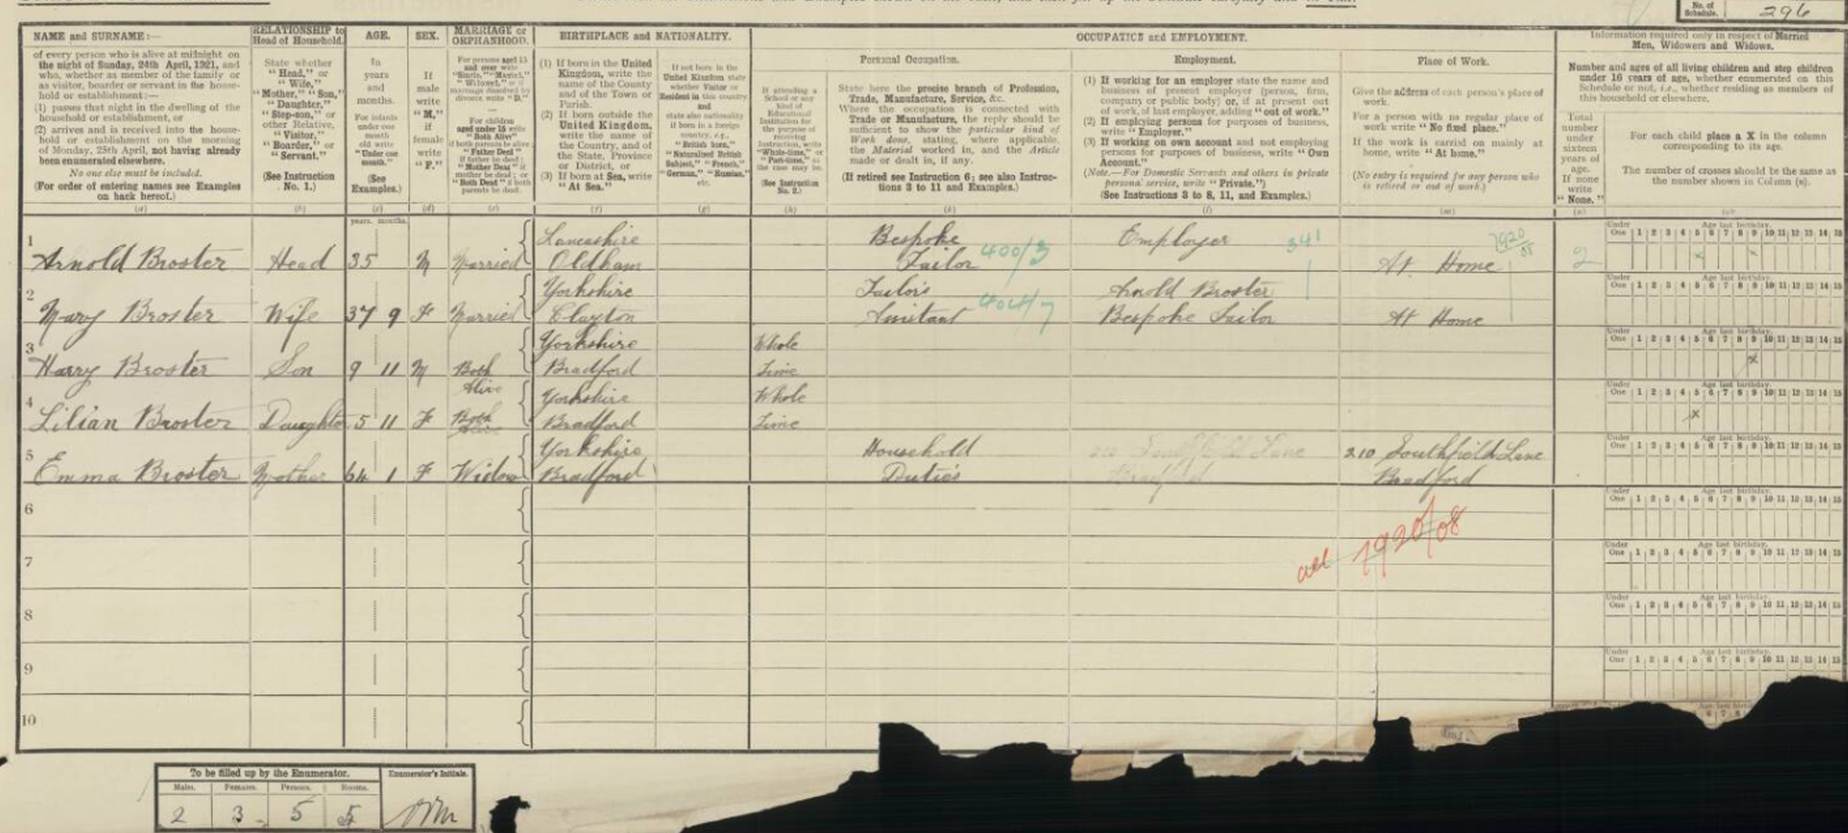 No. of Schedule. 296
NAME and SURNAME:—
of every person who is alive at midnight on
the night of Sunday, 24th April, 1921, and
who, whether as member of the family or
as visitor, boarder or servant in the house-
hold or establishment:—
(1) passes that night in the dwelling of the
household or establishment, or
(2) arrives and is received into the house-
hold or establishment on the morning
of Monday, 25th April, not having already
been enumerated elsewhere.
No one else must be included.
(For order of entering names see Examples
on back hereof.)
(a)
RELATIONSHIP to
Head of Household.
State whether
"Head," or
"Wife,"
"Mother," "Son,"
"Daughter,"
"Step-son," or
other Relative,
"Visitor,"
"Boarder," or
"Servant."
(See Instruction
No. 1.)
(b)
AGE.
In
years
and
months.
For infants
under one
month
old write
"Under one
month."
(See
Examples.)
(c)
years. months.
SEX.
If
male
write
"M,"
if
female
write
"F."
(d)
MARRIAGE or
ORPHANHOOD.
For persons aged 15
and over write
"Single," "Married,"
(e)
BIRTHPLACE and NATIONALITY.
(1) If born in the United
Kingdom, write the
name of the County
and of the Town or
Parish.
(2) If born outside the
United Kingdom,
write the name of
the Country, and of
the State, Province
or District, or
(3) If born at Sea, write
"At Sea."
(f)
If not born in the
United Kingdom state
whether Visitor or
Resident in this country
and
state also nationality
if born in a foreign
country, e.g.,
"British born,"
"Naturalised British
Subject," "French,"
"German," "Russian,"
etc.
(g)
If attending a
School or any
kind of
Educational
Institution for
the purpose of
receiving
Instruction, write
"Whole-time," or
"Part-time," as
the case may be.
(See Instruction
No. 2.)
(h)
OCCUPATION and EMPLOYMENT.
Personal Occupation.
State here the precise branch of Profession,
Trade, Manufacture, Service, &c.
Where the occupation is connected with
Trade or Manufacture, the reply should be
sufficient to show the particular kind of
Work done, stating, where applicable,
the Material worked in, and the Article
made or dealt in, if any.
(If retired see Instruction 6; see also Instruc-
tions 3 to 11 and Examples.)
(k)
Employment.
(1) If working for an employer state the name and
business of present employer (person, firm,
company or public body) or, if at present out
of work, of last employer, adding "out of work."
(2) If employing persons for purposes of business,
write "Employer."
(3) If working on own account and not employing
persons for purposes of business, write "Own
Account."
(Note.—For Domestic Servants and others in private
personal service, write "Private.")
(See Instructions 3 to 8, 11, and Examples.)
(l)
Place of Work.
Give the address of each person's place of
work.
For a person with no regular place of
work write "No fixed place."
If the work is carried on mainly at
home, write "At home."
(No entry is required for any person who
is retired or out of work.)
(m)
Information required only in respect of Married
Men, Widowers and Widows.
Number and ages of all living children and step children
under 16 years of age, whether enumerated on this
Schedule or not, i.e., whether residing as members of
this household or elsewhere.
Total
number
under
sixteen
years of
age.
If none
write
"None."
(n)
For each child place a X in the column
corresponding to its age.
The number of crosses should be the same as
the number shown in Column (n).
1 Arnold Broster Head 35 M Married Lancashire Oldham Bespoke Tailor 400/3 Employer 341 At Home 7920/08 2
2 Mary Broster Wife 37 9 F Married Yorkshire Clayton Tailor's Assistant 404/7 Arnold Broster Bespoke Tailor At Home
3 Harry Broster Son 9 11 M Both Alive Yorkshire Bradford Whole Time x
4 Lilian Broster Daughter 5 11 F Both Alive Yorkshire Bradford Whole Time x
5 Emma Broster Mother 64 1 F Widow Yorkshire Bradford Household Duties 210 Southfield Lane Bradford
6
all 7920/08
7
8
9
10
To be filled up by the Enumerator.
Males. Females. Persons. Rooms.
2 3 5 5
Enumerator's Initials.